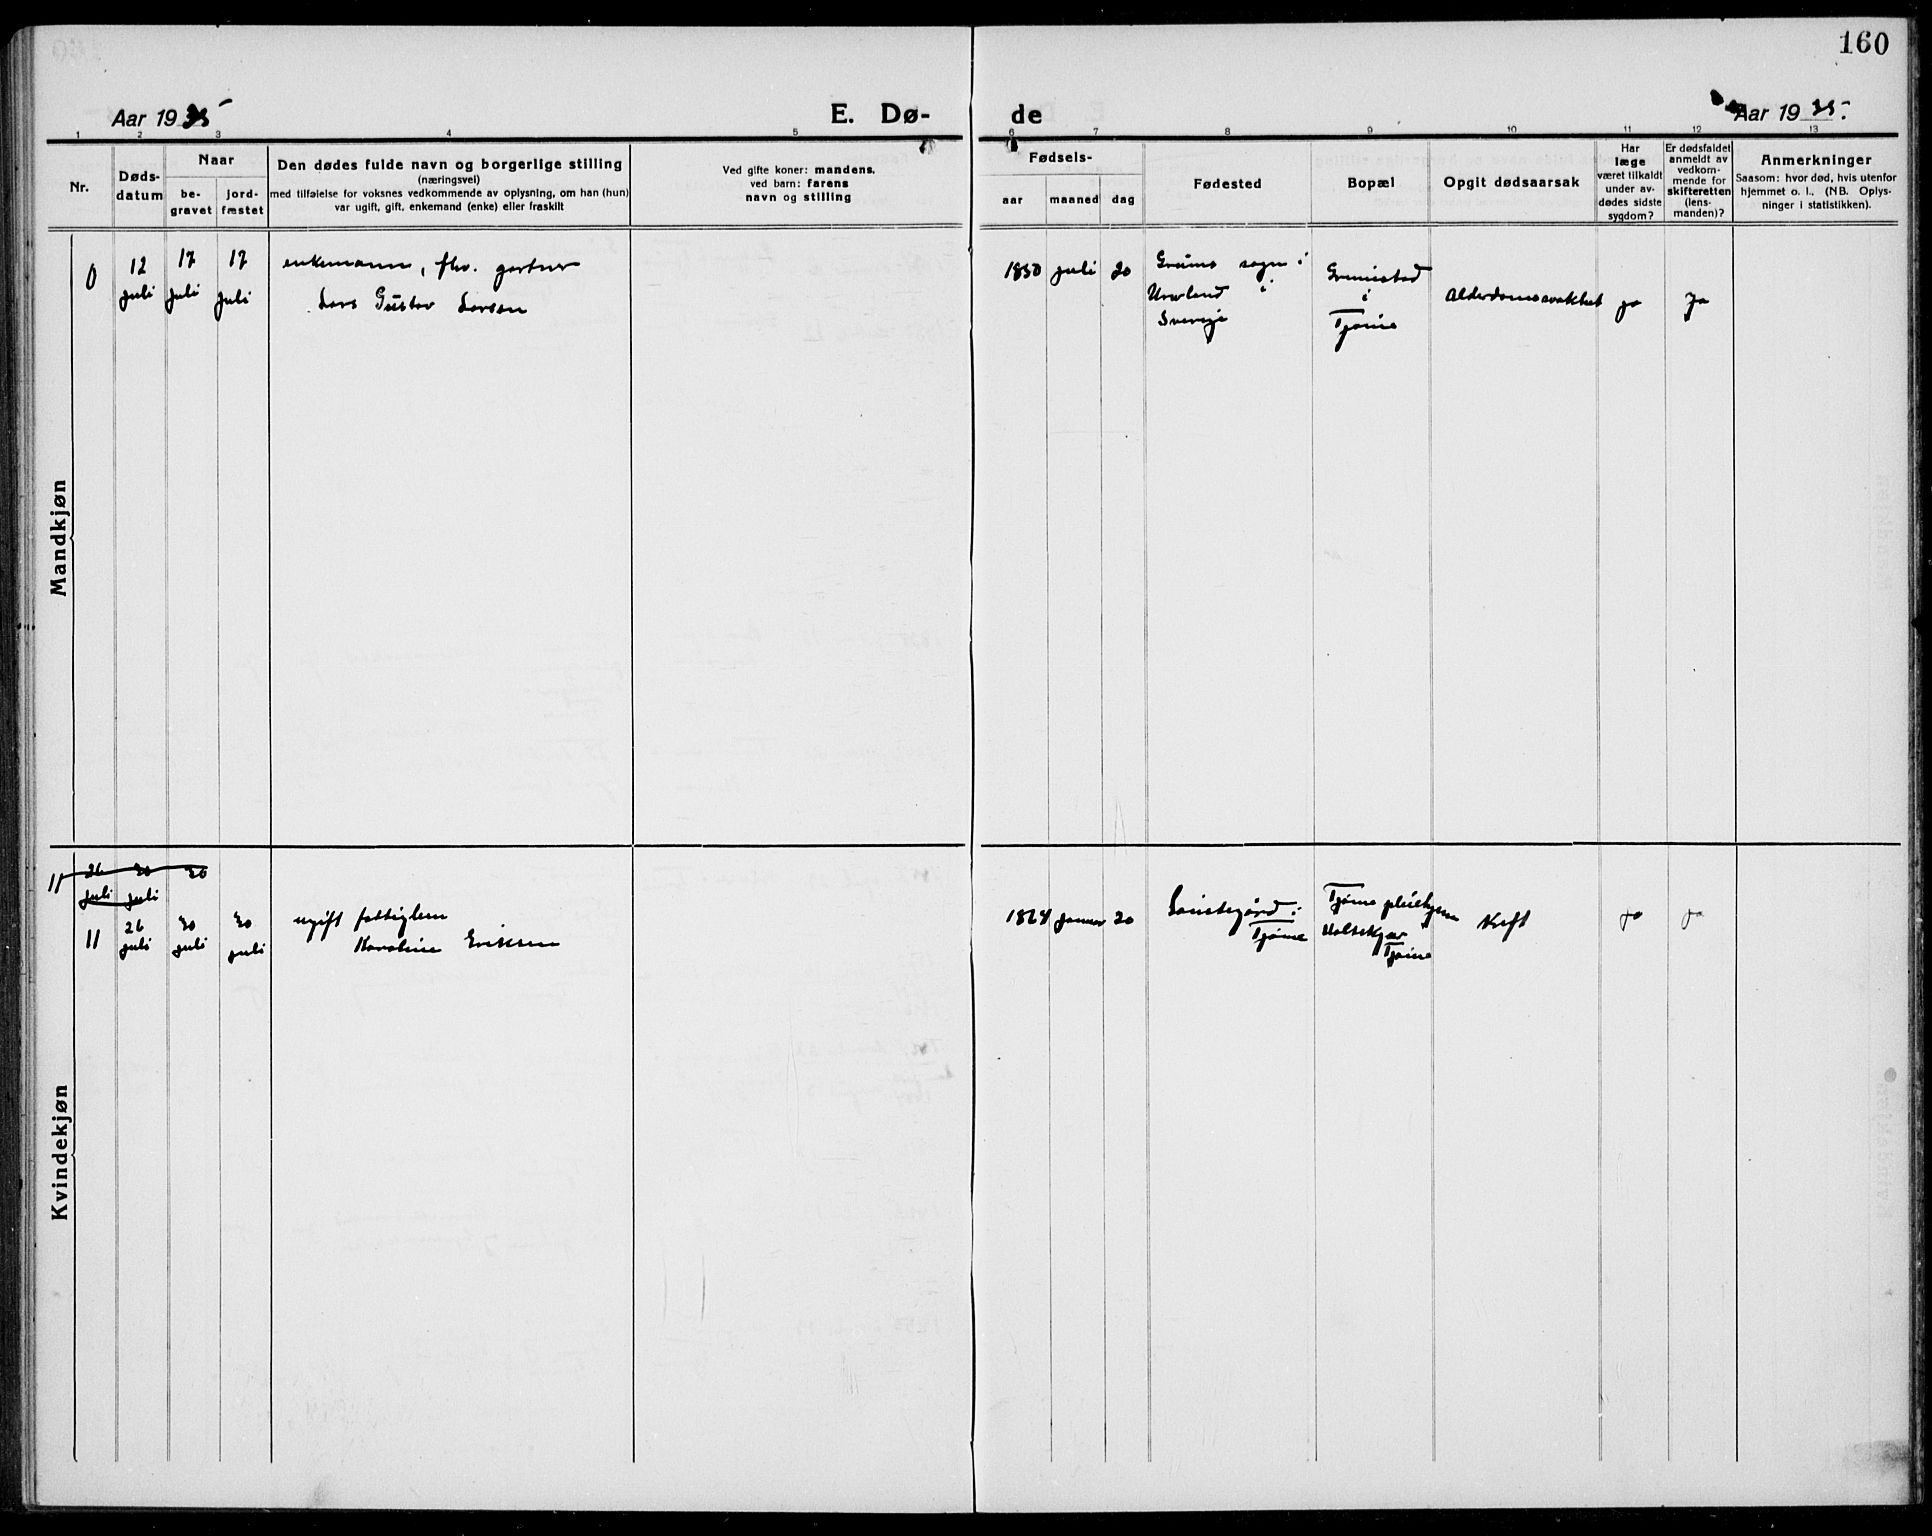 160
Aar 1935
E. Dø-
de
Aar 1935.
1 2 3 4 5 6 7 8 9 10 11 12 13
Nr.
Døds-
datum
Naar
be-
gravet
jord-
fæstet
Den dødes fulde navn og borgerlige stilling
(næringsvei)
med tilføielse for voksnes vedkommende av oplysning, om han (hun)
var ugift, gift, enkemand (enke) eller fraskilt
Ved gifte koner: mandens,
ved barn: farens
navn og stilling
Fødsels-
aar
maaned
dag
Fødested
Bopæl
Opgit dødsaarsak
Har
læge
været tilkaldt
under av-
dødes sidste
sygdom?
Er dødsfaldet
anmeldt av
vedkom-
mende for
skifteretten
(lens-
manden)?
Anmerkninger
Saasom: hvor død, hvis utenfor
hjemmet o. l., (NB. Oplys-
ninger i statistikken).
Mandkjøn
12
juli
17
juli
17
juli
enkemann, fhv. gartner
Lars Gustav Larsen
1850 juli 20
Grums sogn i
i
Sverige
Grimestad
i
Tjøme
Alderdomssvakhet
ja
ja
Kvindekjøn
11
26
juli
30
juli
30
11
26
juli
30
juli
30
juli
ugift fattiglem
Karoline Eriksen
januar 20
i
Tjøme
Tjøme pleiehjem
Tjøme
Kreft
ja
ja